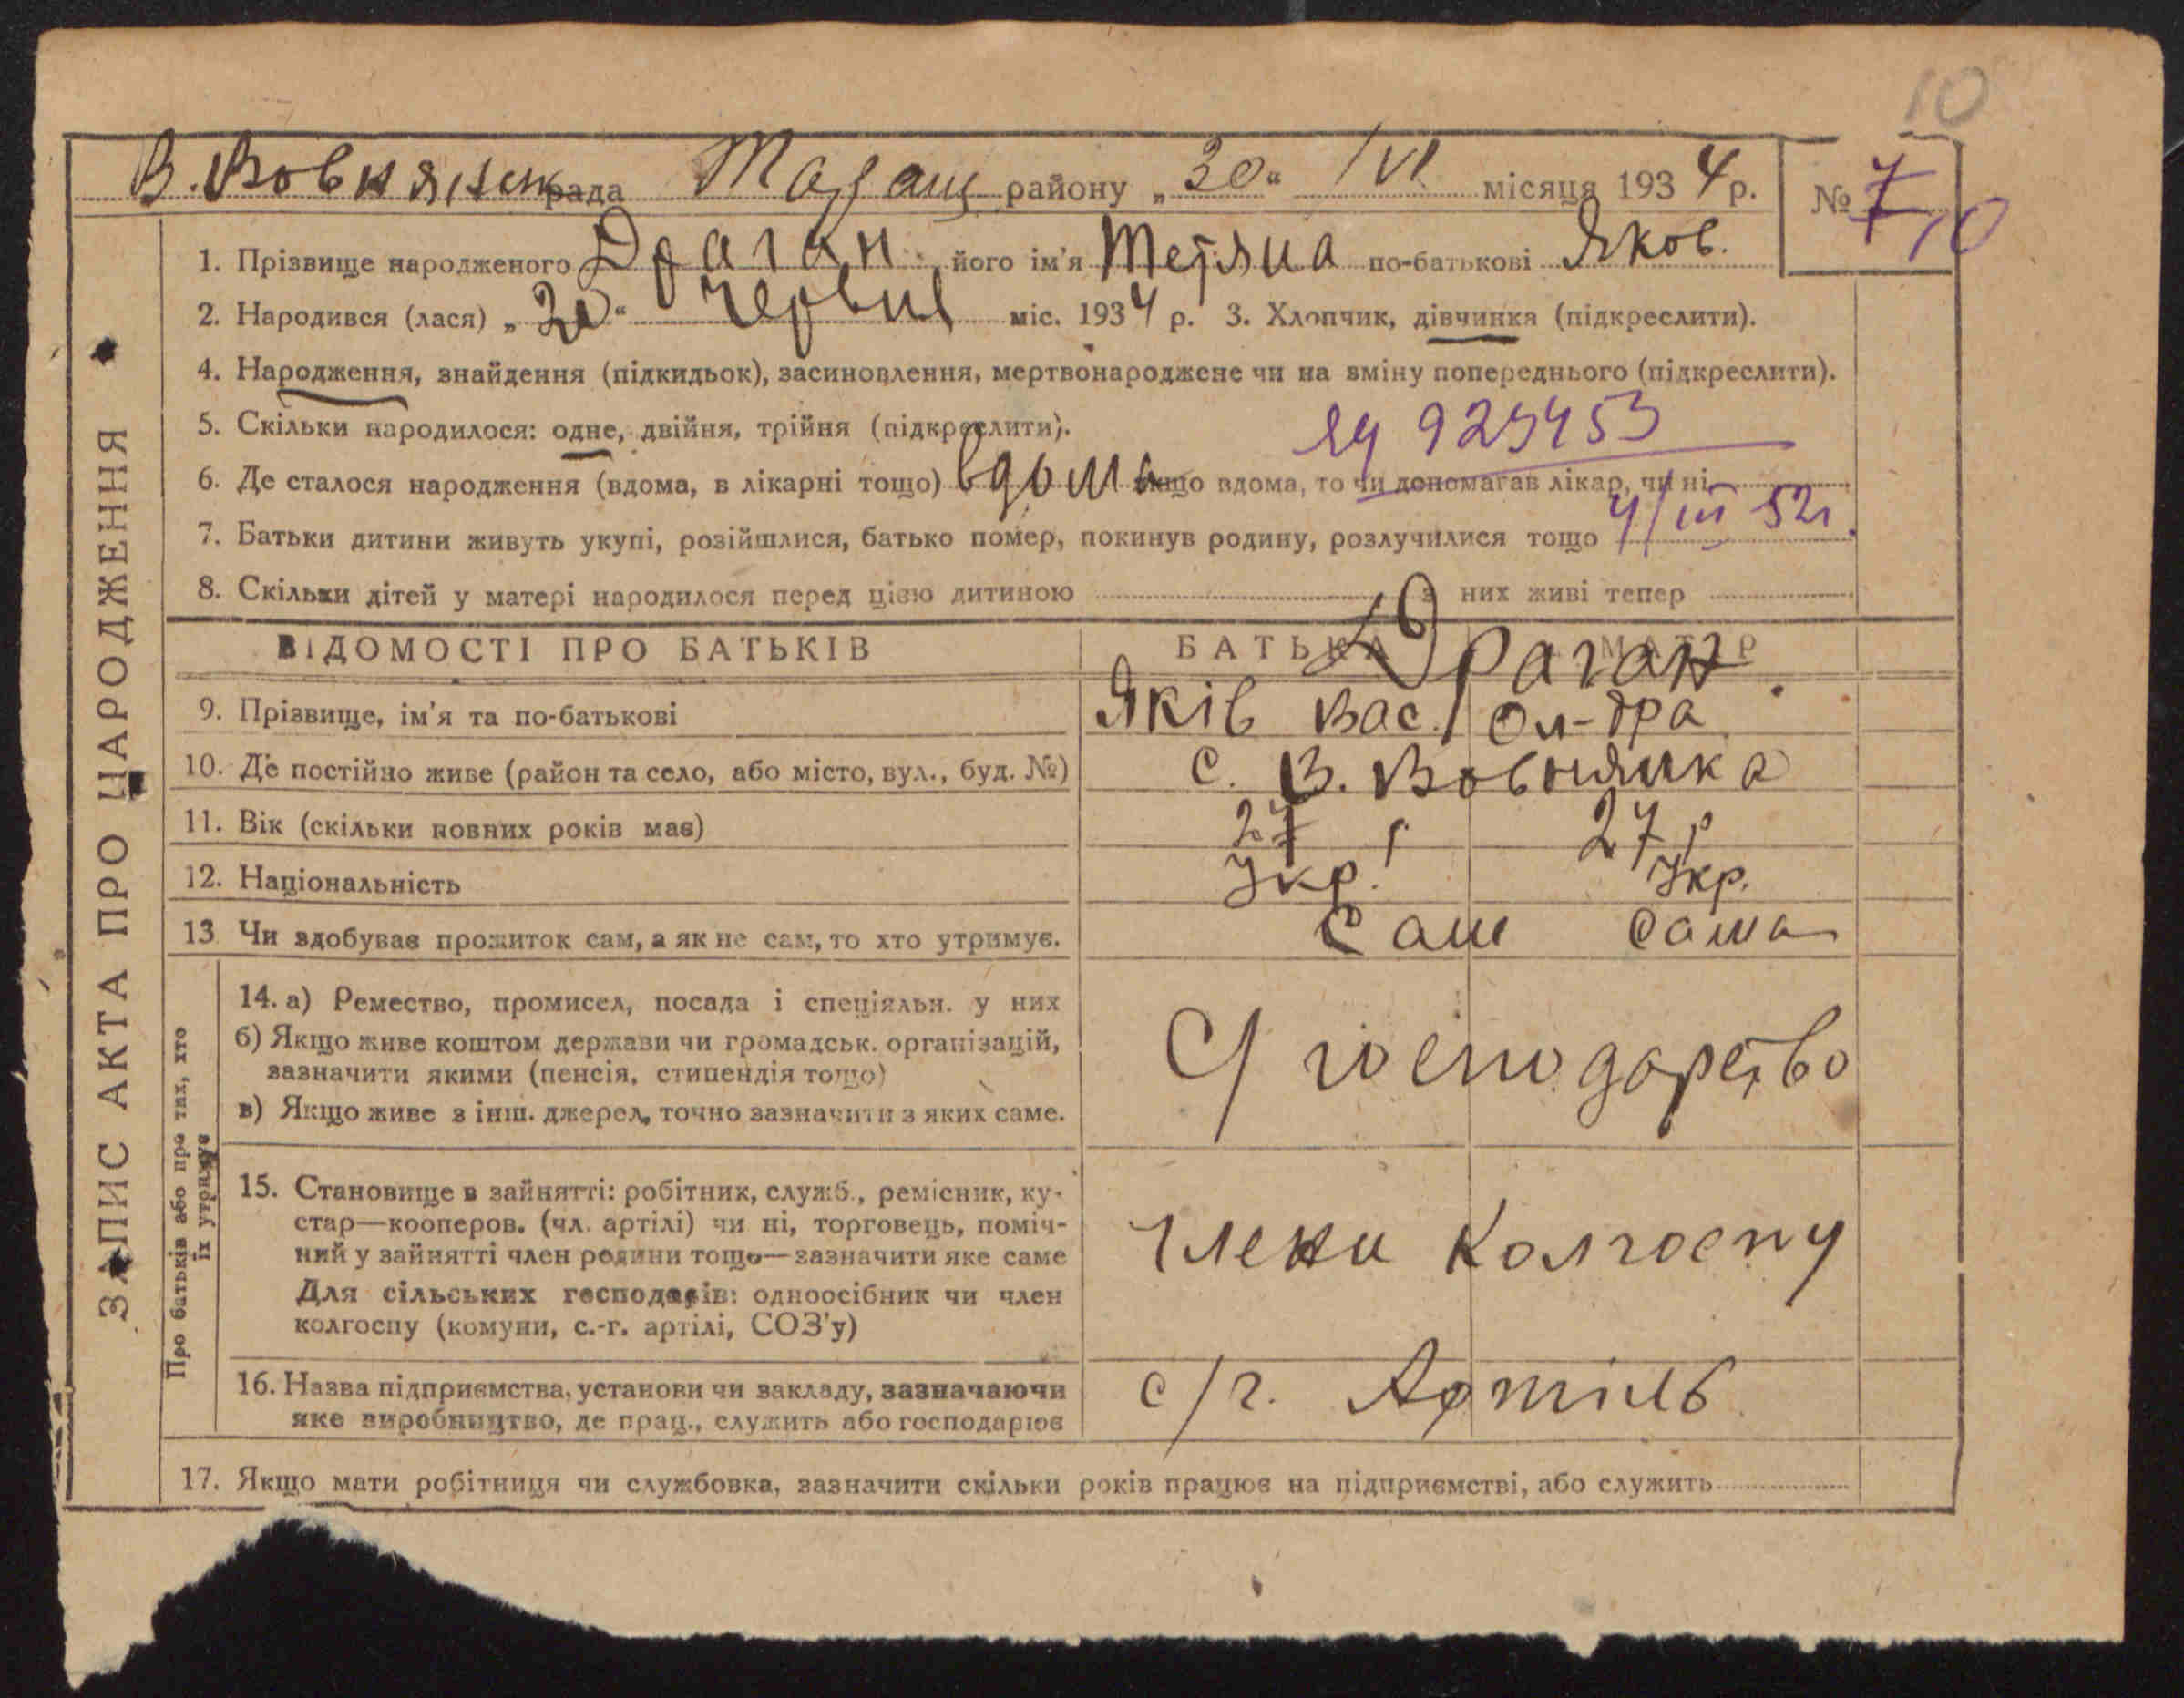 10
В. Вовнянськ рада Таращ району „30“ /VI місяця 1934 р. № 7 10
1. Прізвище народженого Драган його ім'я Тетяна по-батькові Яков.
2. Народився (лася) „20“ червня міс. 1934 р. 3. Хлопчик, дівчинка (підкреслити).
4. Народження, знайдення (підкидьок), засиновлення, мертвонароджене чи на зміну попереднього (підкреслити).
5. Скільки народилося: одне, двійня, трійня (підкреслити).
923453
6. Де сталося народження (вдома, в лікарні тощо) вдома якщо вдома, то чи допомагав лікар, чи ні
7. Батьки дитини живуть укупі, розійшлися, батько помер, покинув родину, розлучилися тощо 4/III 52г.
8. Скільки дітей у матері народилося перед цією дитиною з них живі тепер
ВІДОМОСТІ ПРО БАТЬКІВ БАТЬКА МАТЕР
Драган
9. Прізвище, ім'я та по-батькові Яків Вас. Ол-дра
10. Де постійно живе (район та село, або місто, вул., буд. №) с. В. Вовнянка
11. Вік (скільки повних років має) 27 р 27 р
12. Національність Укр. Укр.
13 Чи здобуває прожиток сам, а як не сам, то хто утримує. Сам Сама
14. а) Ремество, промисел, посада і спеціяльн. у них
б) Якщо живе коштом держави чи громадськ. організацій,
зазначити якими (пенсія, стипендія тощо)
С/господарство
в) Якщо живе з інш. джерел, точно зазначити з яких саме.
15. Становище в зайнятті: робітник, служб., ремісник, ку-
стар—кооперов. (чл. артілі) чи ні, торговець, поміч-
ний у зайнятті член родини тощо—зазначити яке саме
Члени Колгоспу
Для сільських господарів: одноосібник чи член
колгоспу (комуни, с.-г. артілі, СОЗ'у)
16. Назва підприємства, установи чи закладу, зазначаючи
яке виробництво, де прац., служить або господарює
с/г. Артіль
17. Якщо мати робітниця чи службовка, зазначити скільки років працює на підприємстві, або служить
ЗАПИС АКТА ПРО НАРОДЖЕННЯ
Про батьків або про тих, хто
їх утримує